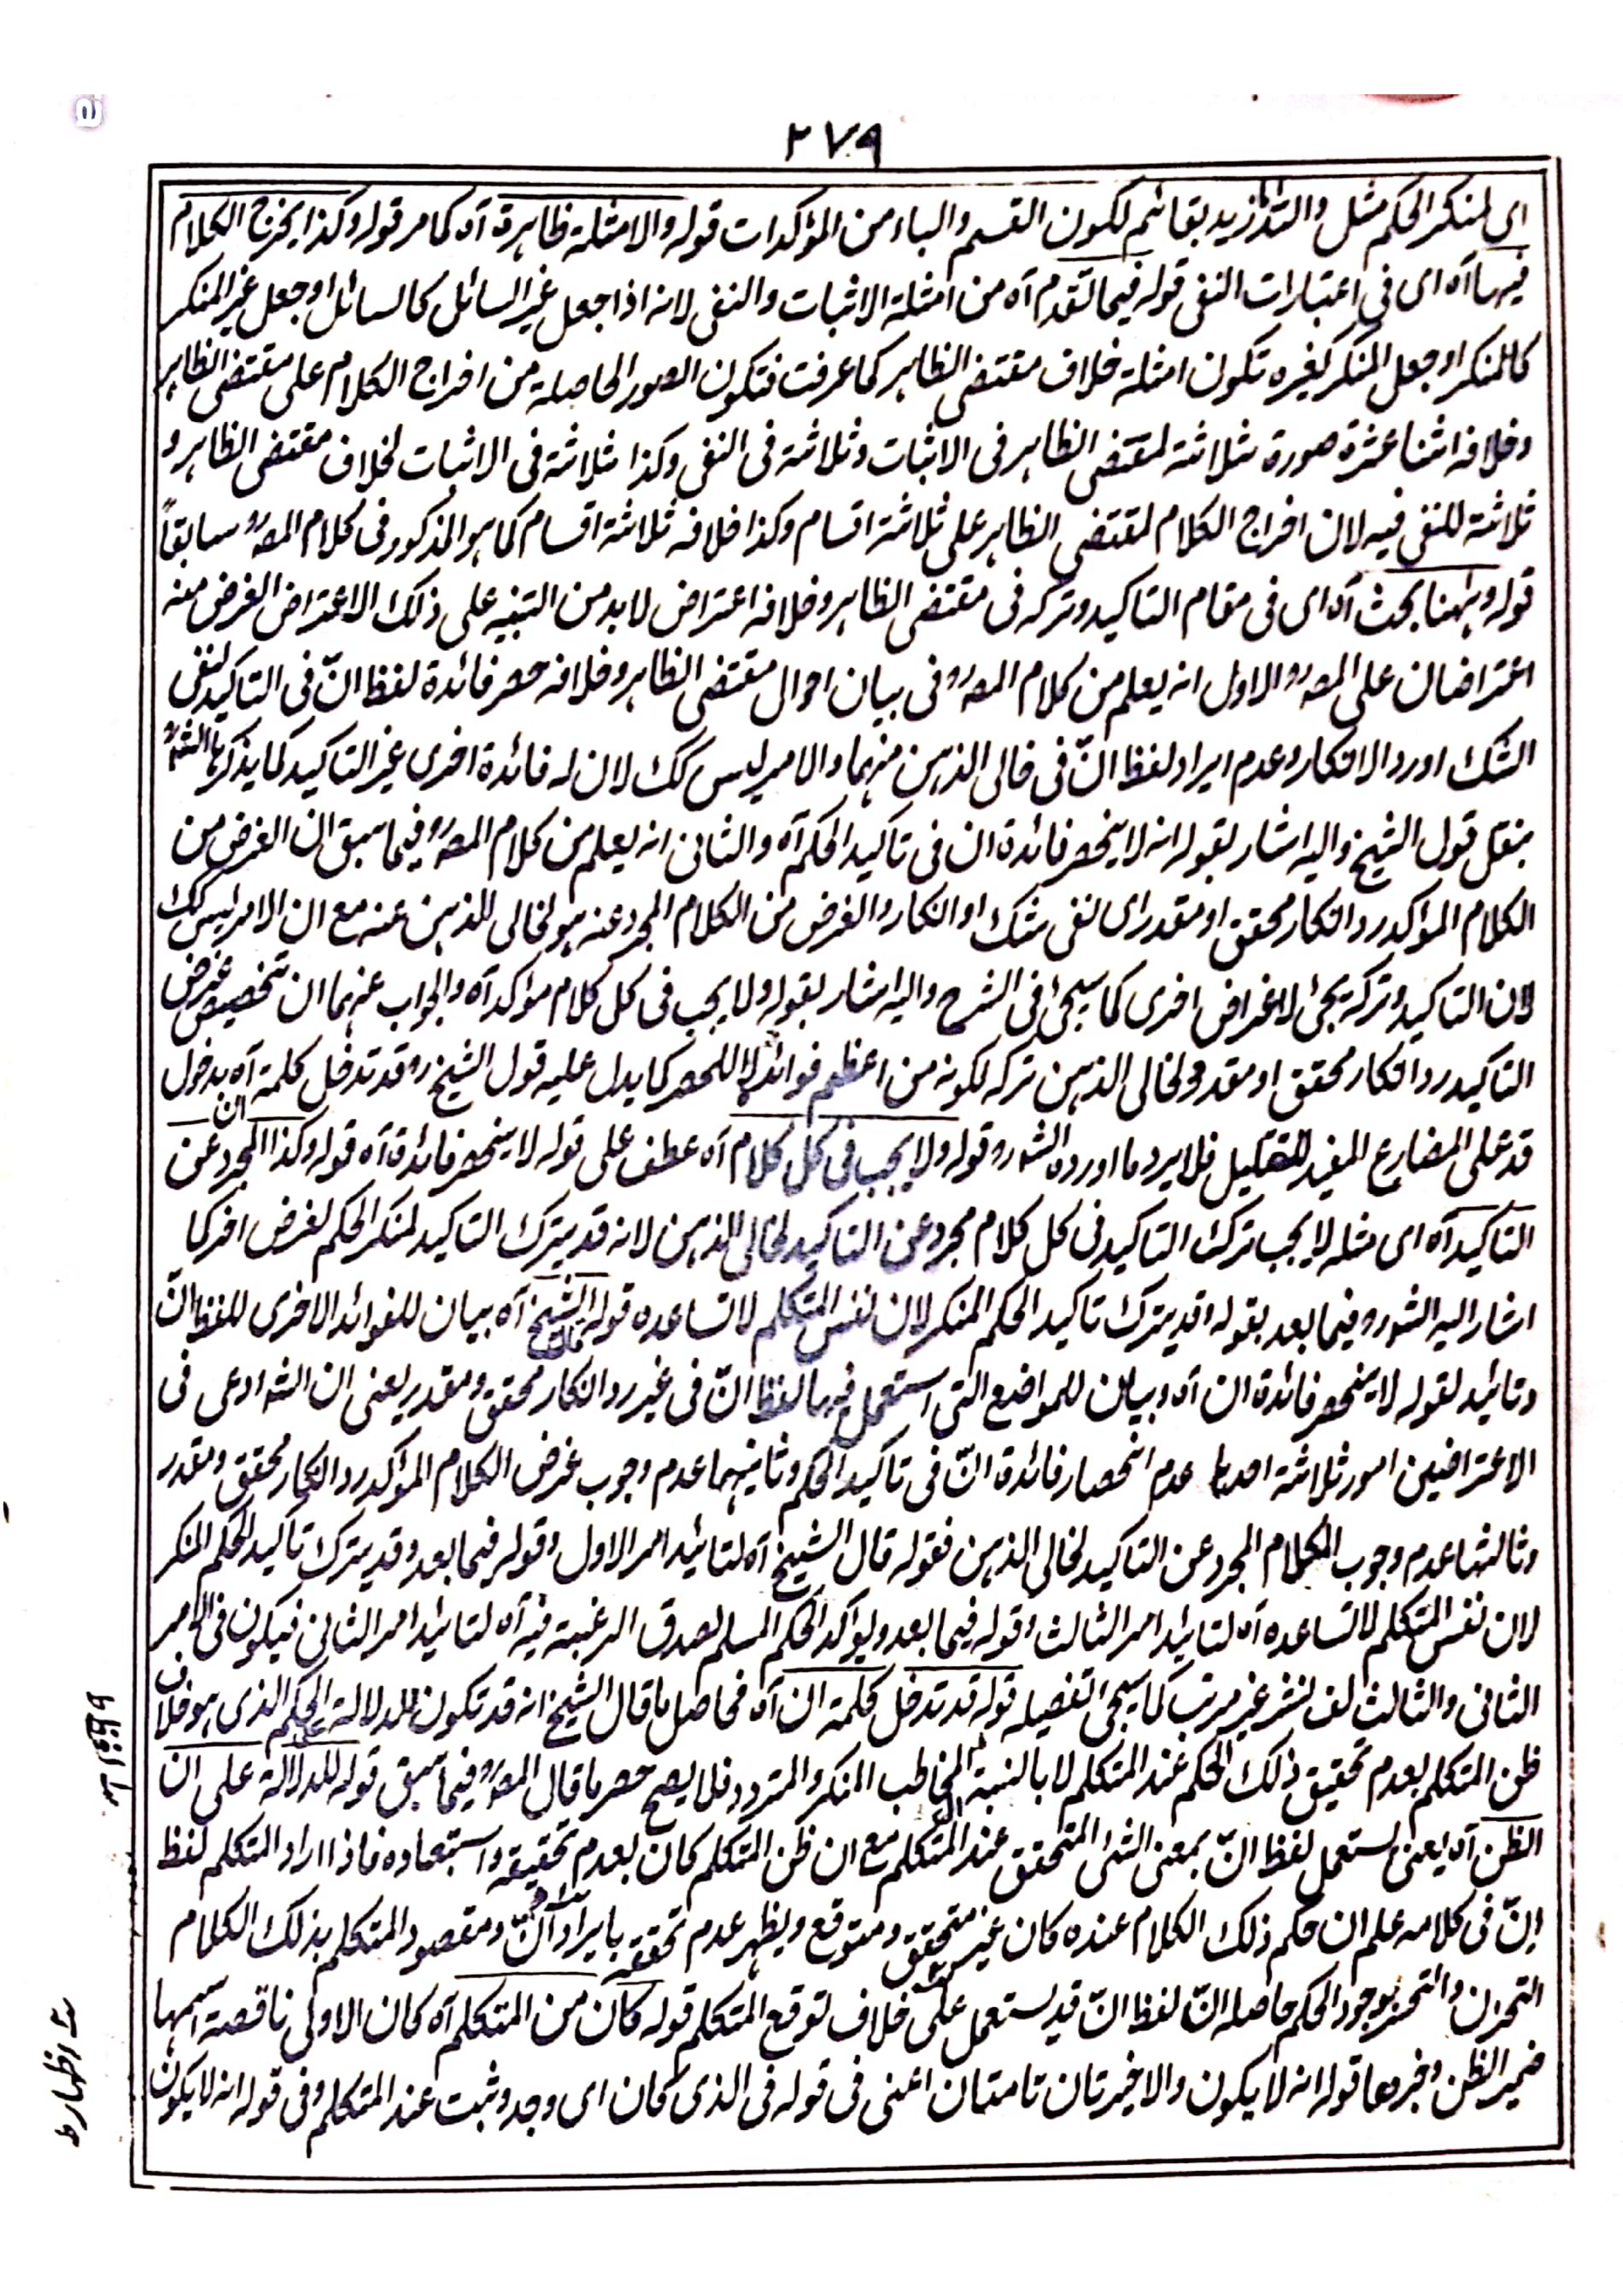 ٢٧٩
اى لمنكر الحكم مثل والله ما زيد بقائم لكون القسم والباء من المؤكدات قوله والامثلة ظاهرة آه كما مر قوله وكذا يخرج الكلام
فيها آه اى فى اعتبارات النفى قوله فيما تقدم آه من امثلة الاثبات والنفى لانه اذا جعل غير السائل كالسائل او جعل غير المنكر
كالمنكر او جعل المنكر كغيره تكون امثلة خلاف مقتضى الظاهر كما عرفت فتكون الصور الحاصلة من اخراج الكلام على مقتضى الظاهر
وخلافه اثنا عشرة صورة ثلاثة لمقتضى الظاهر فى الاثبات وثلاثة فى النفى وكذا ثلاثة فى الاثبات لخلاف مقتضى الظاهر و
ثلاثة للنفى فيه لان اخراج الكلام لمقتضى الظاهر على ثلاثة اقسام وكذا خلافه ثلاثة اقسام كما هو المذكور فى كلام المصؒ سابقاً
قوله وههنا بحث آه اى فى مقام التاكيد وتركه فى مقتضى الظاهر وخلافه اعتراض لابد من التنبيه على ذلك الاعتراض الغرض منه
اعتراضان على المصؒ الاول انه يعلم من كلام المصؒ فى بيان احوال مقتضى الظاهر وخلافه حصر فائدة لفظ انّ فى التاكيد لنفى
الشك او رد الانكار وعدم ايراد لفظ انّ فى خالى الذهن منهما والامر ليس كك لان له فائدة اخرى غير التاكيد كما يذكرها الشؒ
بنقل قول الشيخ واليه اشار بقوله انه لا ينحصر فائدة ان فى تاكيد الحكم آه والثانى انه يعلم من كلام المصؒ فيما سبق ان الغرض من
الكلام المؤكد رد انكار محقق او مقدر اى نفى شك او انكار والغرض من الكلام المجرد عنه هو لخالى للذهن عنه مع ان الامر ليس كك
لان التاكيد وتركه يجئ لاغراض اخرى كما سيجئ فى الشرح واليه اشار بقوله ولا يجب فى كل كلام مؤكد آه والجواب عنهما ان تخصيص غرض
التاكيد رد انكار محقق او مقدر ولخالى الذهن تركه لكونه من اعظم فوائده لا للحصر كما يدل عليه قول الشيخ رو قد تدخل كلمة ان آه بدخول
قد على المضارع المفيد للتقليل فلا يرد ما اورده الشؒ قوله ولا يجب فى كل كلام آه عطف على قوله لا ينحصر فائدة آه قوله وكذا المجرد عن
التاكيد آه اى مثله لا يجب ترك التاكيد فى كل كلام مجرد عن التاكيد لخالى الذهن لانه قد يترك التاكيد لمنكر الحكم لغرض اخر كما
اشار اليه الشؒ فيما بعد بقوله وقد يترك تاكيد الحكم المنكر لان نفس المتكلم لا تساعده قوله قال الشيخ آه بيان للفوائد الاخرى للفظ انّ
وتائيد لقوله لا ينحصر فائدة ان آه وبيان للمواضع التى استعمل فيها لفظ انّ فى غير رد انكار محقق ومقدر يعنى ان الشؒ ادعى فى
الاعتراضين امور ثلاثة احدها عدم انحصار فائدة انّ فى تاكيد الحكم وثانيهما عدم وجوب غرض الكلام المؤكد رد انكار محقق ومقدر
وثالثها عدم وجوب الكلام المجرد عن التاكيد لخالى الذهن فقوله قال الشيخ آه لتائيد امر الاول وقوله فيما بعد وقد يترك تاكيد الحكم المنكر
لان نفس المتكلم لا تساعده آه لتائيد امر الثالث وقوله فيما بعد ويؤكد الحكم المسلم لصدق الرغبة فيه آه لتائيد امر الثانى فيكون فى الامر
الثانى والثالث لف نشر غير مرتب كما سيجئ تفصيله قوله قد تدخل كلمة ان آه فحاصل ما قال الشيخ انه قد تكون للدلالة على الحكم الذى هو خلاف
ظن المتكلم بعدم تحقيق ذلك الحكم عند المتكلم لا بالنسبة الى المخاطب المنكر والمتردد فلا يصح حصر ما قال المصؒ فيما سبق قوله للدلالة على ان
الظن آه يعنى يستعمل لفظ انّ بمعنى الشئ المتحقق عند المتكلم مع ان ظن المتكلم كان بعدم تحقيقه واستبعاده فاذا اراد المتكلم لفظ
انّ فى كلامه علم ان حكم ذلك الكلام عنده كان غير متحقق ومتوقع ويظهر عدم تحققه بايراد انّ ومقصود المتكلم بذلك الكلام
التحزن والتحسر بوجود الحكم حاصله انّ لفظ انّ قد يستعمل على خلاف توقع المتكلم قوله كان من المتكلم آه كان الاولى ناقصة اسمها
ضمير الظن وخبرها قوله انه لا يكون والاخيرتان تامتان اعنى فى قوله فى الذى كان اى وجد وثبت عند المتكلم وفى قوله انه لا يكون